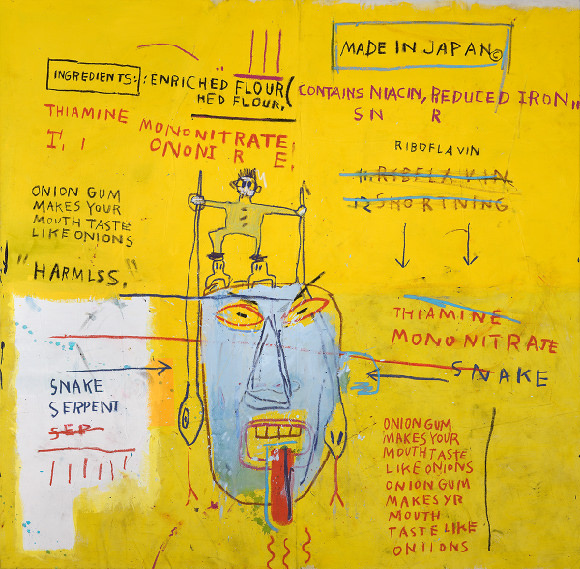 MADE IN JAPAN©
INGREDIENTS: : ENRICHED FLOUR (
HED FLOUR.
CONTAINS NIACIN, REDUCED IRON,,
SN R
THIAMINE MONONITRATE;
I. I ONONI R E.
RIBOFLAVIN
11 RIBFLAVIN
12 SHORTNING
ONION GUM
MAKES YOUR
MOUTH TASTE
LIKE ONIONS
"HARMLSS."
THIAMINE
MONONITRATE
SNAKE
SNAKE
SERPENT
SEP
ONION GUM
MAKES YOUR
MOUTH TASTE
LIKE ONIONS
ONION GUM
MAKES YR
MOUTH
TASTE LIKE
ONIIONS